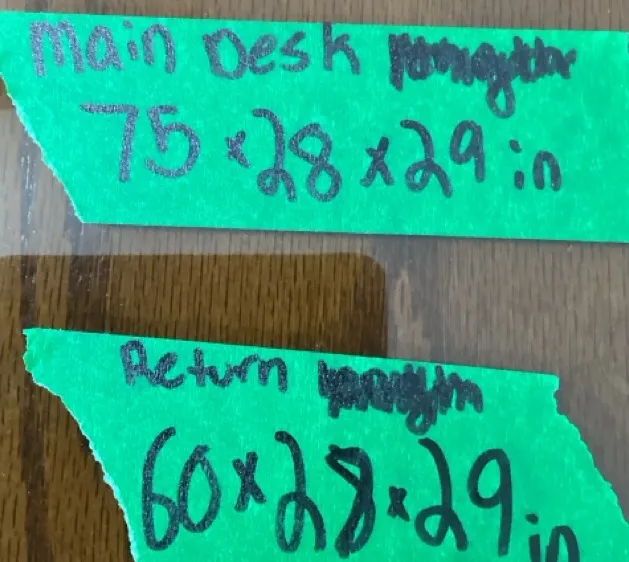 Main Desk
75 x 28 x 29 in
Return
60 x 28 x 29 in